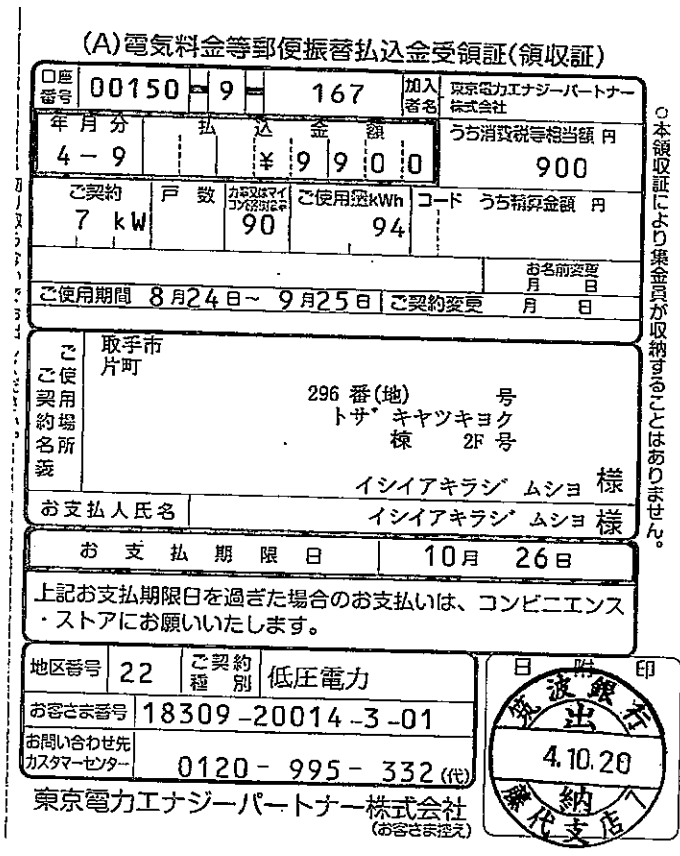 (A)電気料金等郵便振替払込金受領証(領収証)
口座番号 00150-9-167 加入者名 東京電力エナジーパートナー株式会社
年月分 払込金額 うち消費税等相当額 円
4-9 ¥9900 900
ご契約 戸数 力率又はマイコン容量 ご使用量kWh コード うち精算金額 円
7 kW 90 94
お名前変更 月 日
ご使用期間 8月24日~ 9月25日 ご契約変更 月 日
ご使用場所
ご契約名義
取手市
片町
296 番(地) 号
トザ゛キヤツキヨク
棟 2F 号
イシイアキラジ゛ムシヨ 様
お支払人氏名 イシイアキラジ゛ムシヨ 様
お支払期限日 10月 26日
上記お支払期限日を過ぎた場合のお支払いは、コンビニエンス
・ストアにお願いいたします。
地区番号 22 ご契約種別 低圧電力
お客さま番号 18309-20014-3-01
お問い合わせ先
カスタマーセンター 0120-995-332(代)
東京電力エナジーパートナー株式会社
(お客さま控え)
日附印
筑波銀行
出
4.10.20
納
藤代支店へ
○本領収証により集金員が収納することはありません。